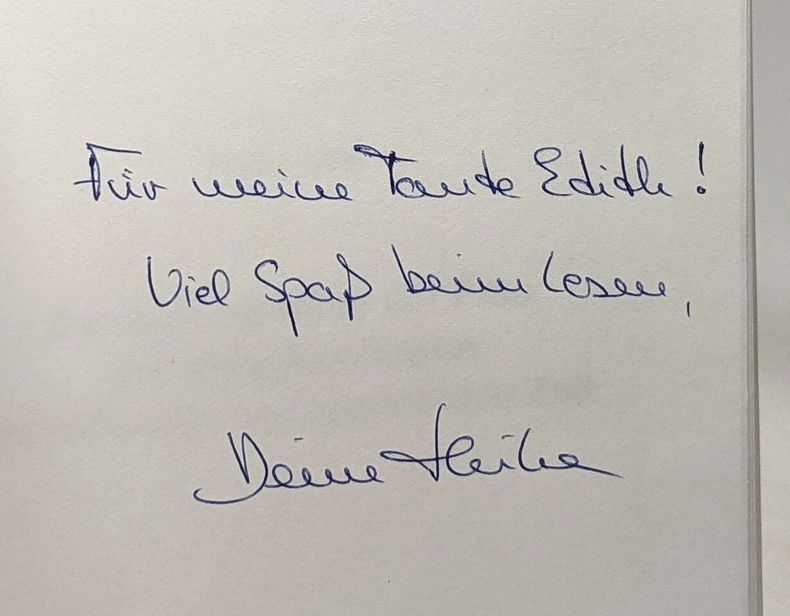 Für meine Tante Edith!
Viel Spaß beim Lesen,
Deine Heike